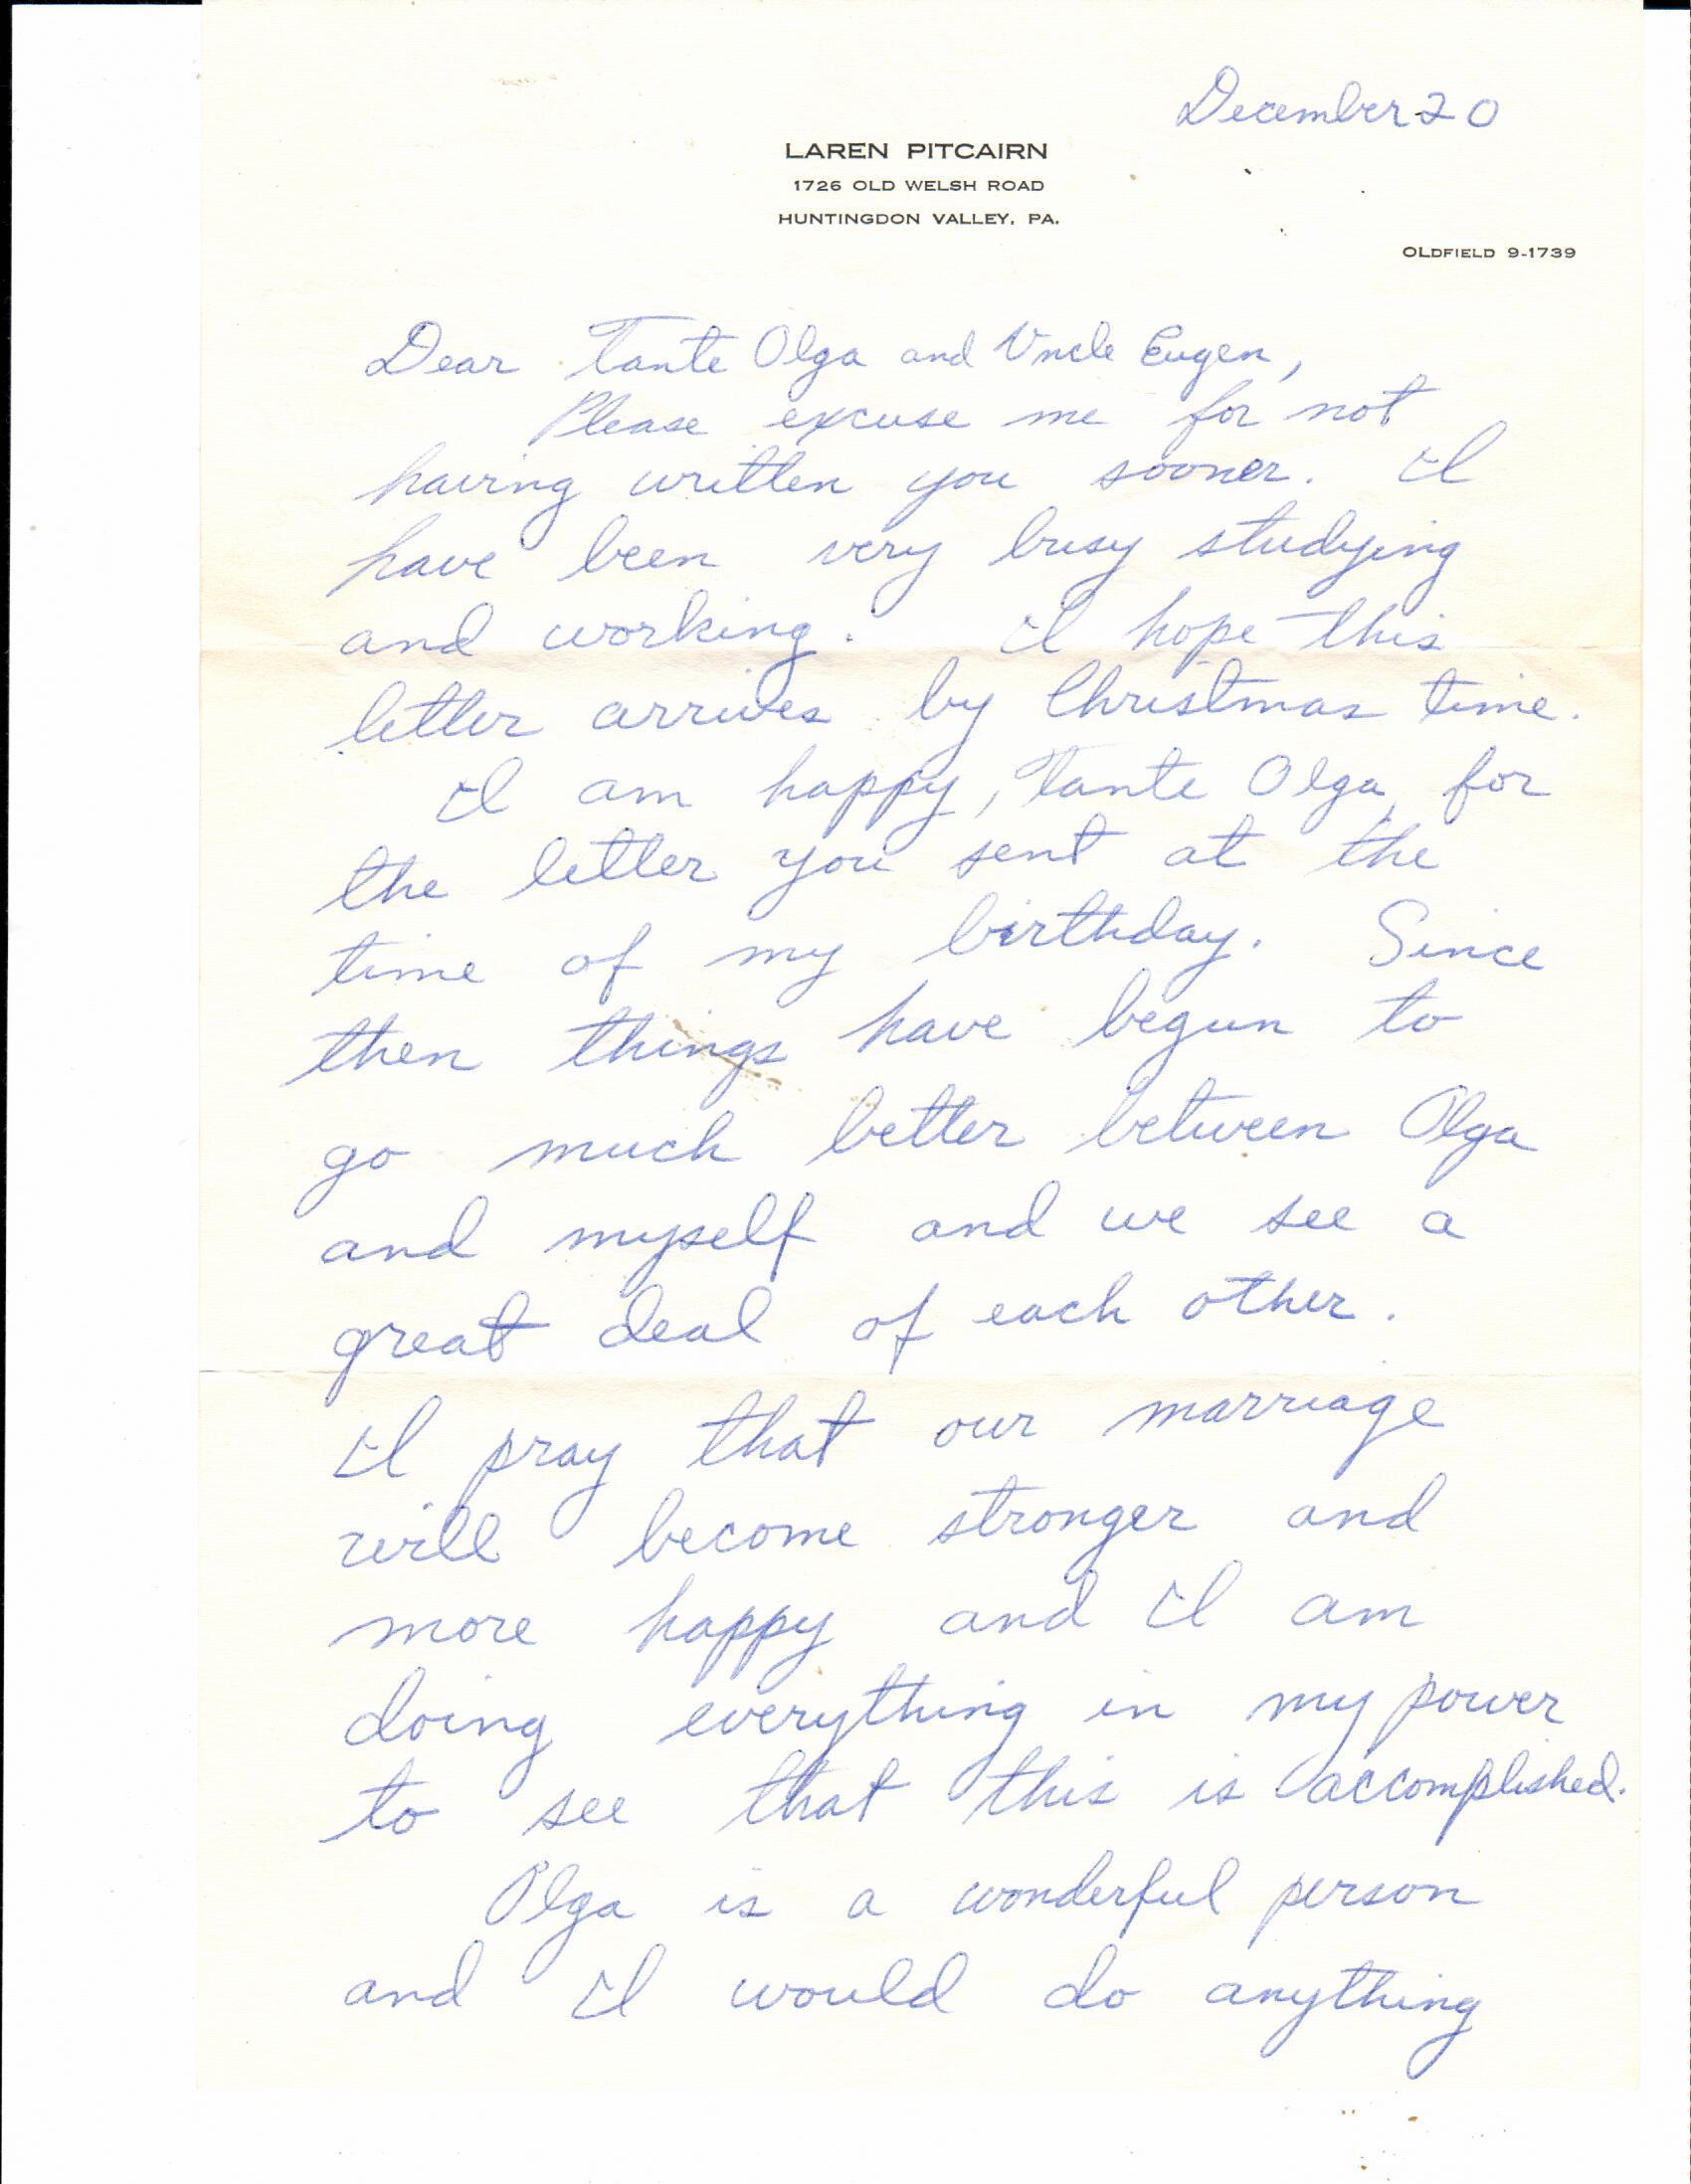 December 20
LAREN PITCAIRN
1726 OLD WELSH ROAD
HUNTINGDON VALLEY, PA.
OLDFIELD 9-1739
Dear Tante Olga and Uncle Eugen,
Please excuse me for not
having written you sooner. I
have been very busy studying
and working. I hope this
letter arrives by Christmas time.
I am happy, Tante Olga, for
the letter you sent at the
time of my birthday. Since
then things have begun to
go much better between Olga
and myself and we see a
great deal of each other.
I pray that our marriage
will become stronger and
more happy and I am
doing everything in my power
to see that this is accomplished.
Olga is a wonderful person
and I would do anything